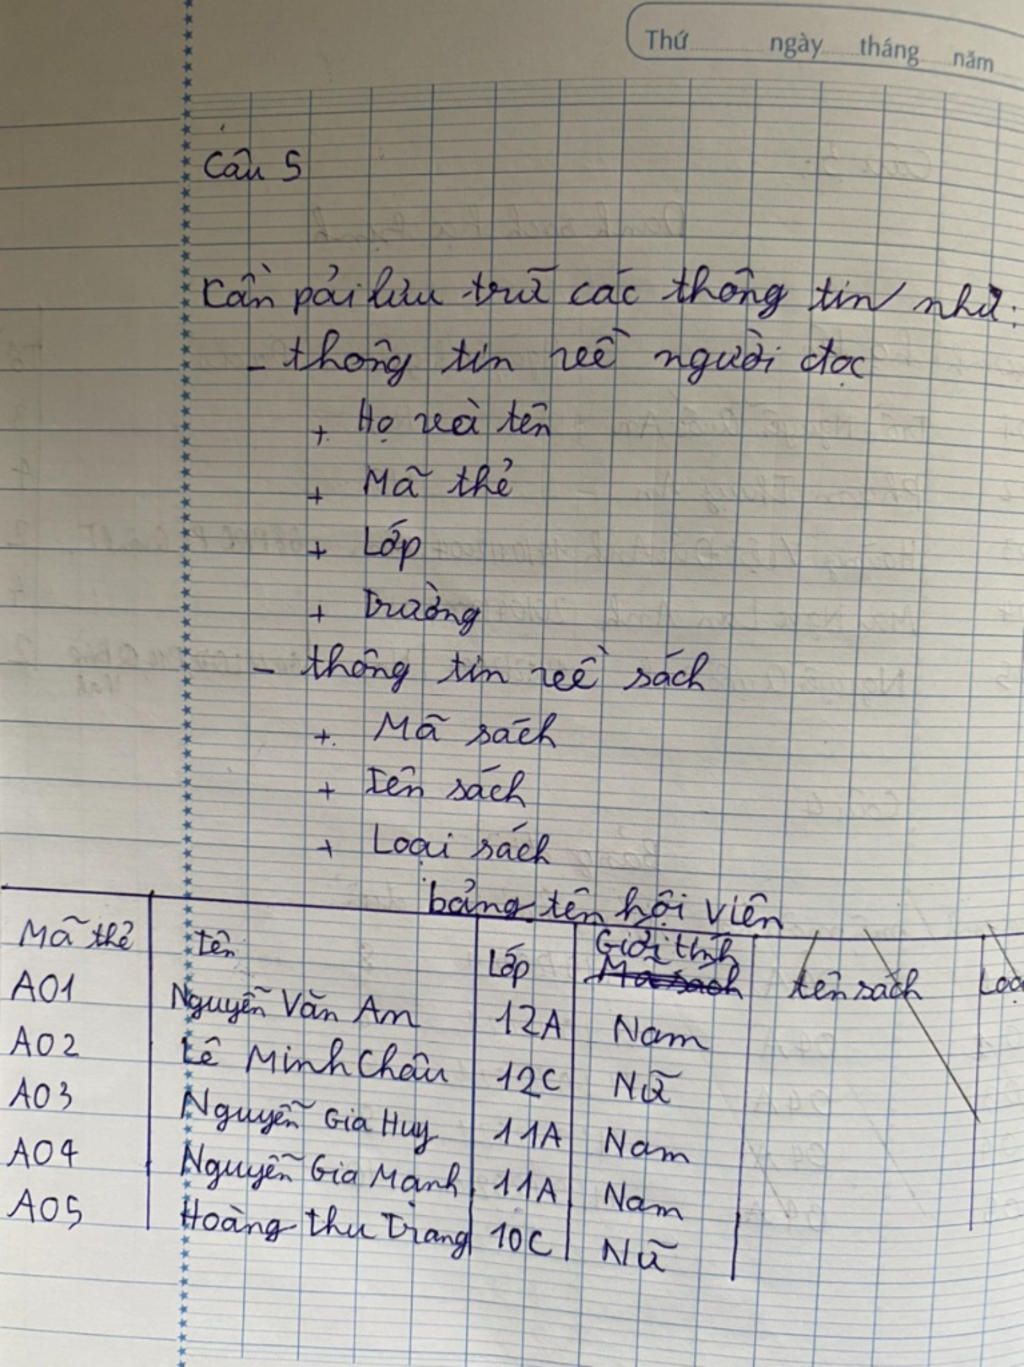 Thứ ngày tháng năm
Câu 5
Cần pải lưu trữ các thông tin như:
- thông tin về người đọc
+ Họ và tên
+ Mã thẻ
+ Lớp
+ Trường
- thông tin về sách
+ Mã sách
+ Tên sách
+ Loại sách
bảng tên hội viên
Mã thẻ Tên Lớp Giới tính Mã sách tên sách Loạ
A01 Nguyễn Văn Am 12A Nam
A02 Lê Minh Châu 12C Nữ
A03 Nguyễn Gia Huy 11A Nam
A04 Nguyễn Gia Mạnh 11A Nam
A05 Hoàng thu Trang 10C Nữ